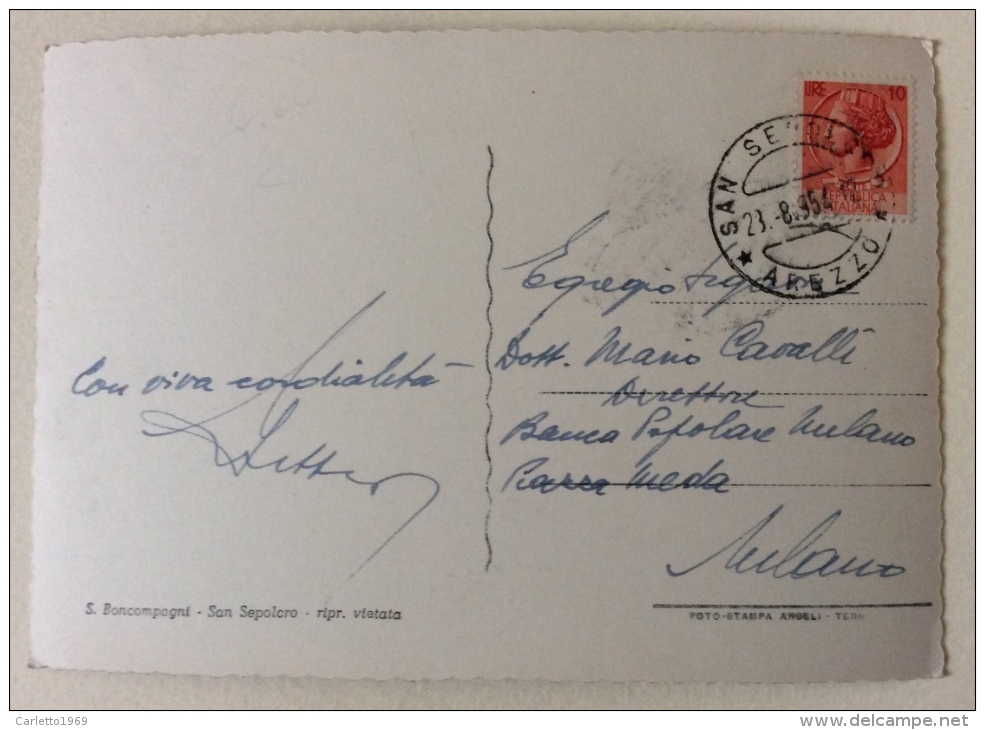 LIRE 10
REPVBBLICA
ITALIANA
SAN SEPOLCRO
23.-8.954
AREZZO
Egregio Signore
Dott. Mario Cavalli
Direttore
Banca Popolare Milano
Piazza Meda
Milano
Con viva cordialità
S. Boncompagni - San Sepolcro - ripr. vietata
FOTO-STAMPA ANGELI - TERNI
Carletto1969
www.delcampe.net